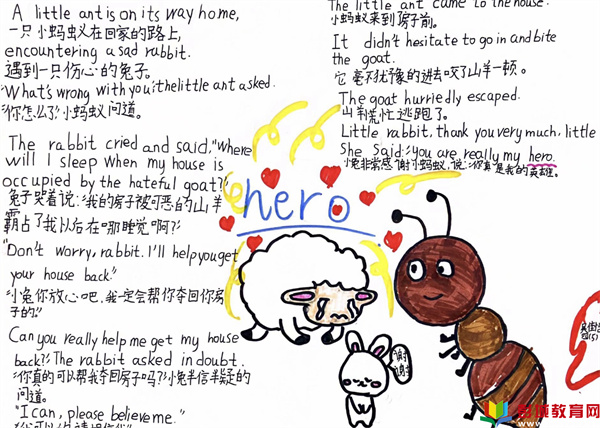 A little ant is on its way home,
一只小蚂蚁在回家的路上,
encountering a sad rabbit.
遇到一只伤心的兔子。
"What's wrong with you?" the little ant asked.
"你怎么了?"小蚂蚁问道。
The rabbit cried and said, "where
will I sleep when my house is
occupied by the hateful goat?"
兔子哭着说:"我的房子被可恶的山羊
霸占了我以后在哪睡觉啊?"
"Don't worry, rabbit. I'll help you get
your house back."
"小兔你放心吧,我一定会帮你夺回你房
子的."
Can you really help me get my house
back?" The rabbit asked in doubt.
"你真的可以帮我夺回房子吗?"小兔半信半疑的
问道。
"I can, please believe me."
The little ant came to the house.
小蚂蚁来到房子前。
It didn't hesitate to go in and bite
the goat.
它毫不犹豫的进去咬了山羊一顿。
The goat hurriedly escaped.
山羊慌忙逃跑了。
Little rabbit, thank you very much, little
She Said: "you are really my hero.
小兔非常感谢小蚂蚁,说:"你真是我的英雄。
hero
谢谢